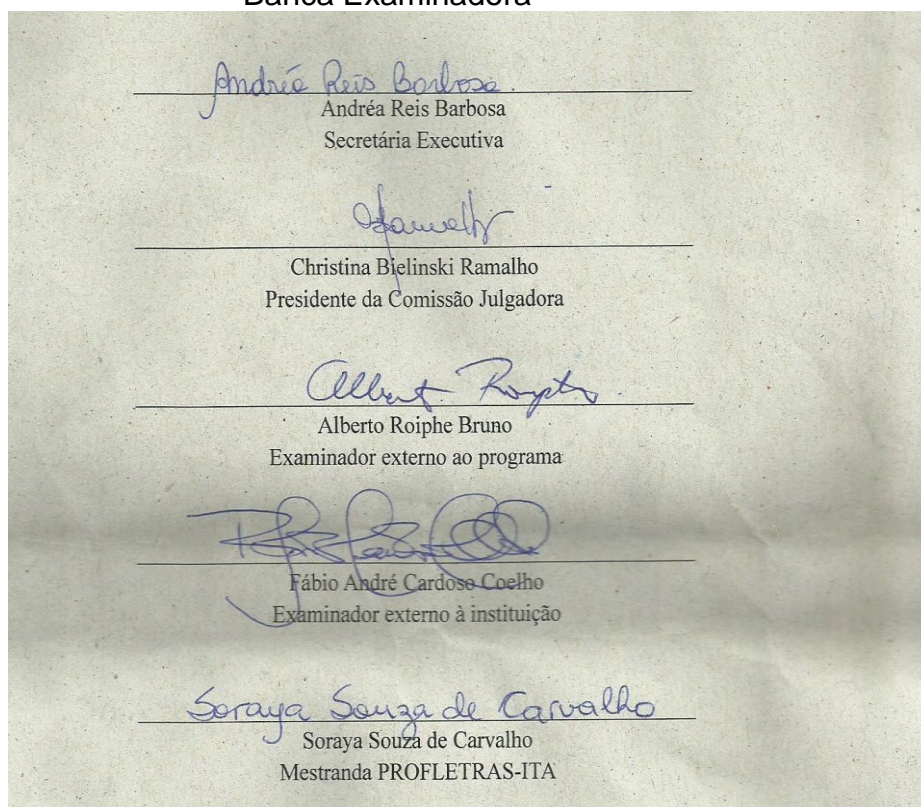 Banca Examinadora
Andréa Reis Barbosa.
Andréa Reis Barbosa
Secretária Executiva
Christina Bielinski Ramalho
Presidente da Comissão Julgadora
Alberto Roiphe Bruno
Examinador externo ao programa
Fábio André Cardoso Coelho
Examinador externo à instituição
Soraya Souza de Carvalho
Soraya Souza de Carvalho
Mestranda PROFLETRAS-ITA